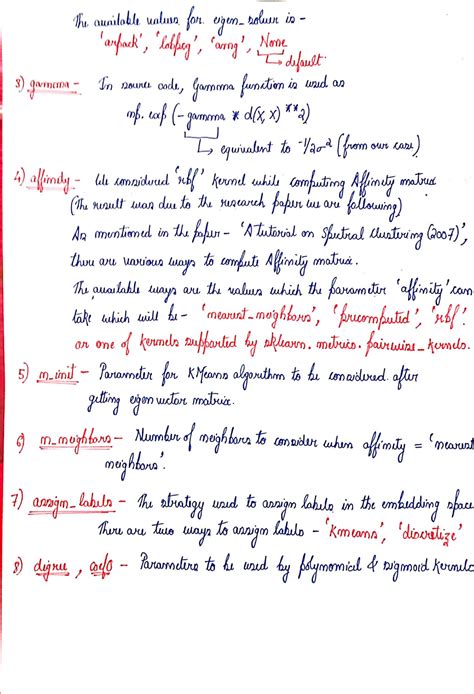 The available values for eigen_solver is -
'arpack', 'lobpcg', 'amg', None
default.
3) gamma - In source code, Gamma function is used as
np.exp (-gamma * d(X, X) ** 2)
equivalent to -1/2σ² (from our case)
4) affinity - We considered 'rbf' Kernel while computing Affinity matrix
(The result was due to the research paper we are following)
As mentioned in the paper - 'A tutorial on Spectral Clustering (2007)',
there are various ways to compute Affinity matrix.
The available ways are the values which the parameter 'affinity' can
take which will be - 'nearest_neighbors', 'precomputed', 'rbf'
or one of kernels supported by sklearn.metrics.pairwise_kernels.
5) n_init - Parameter for KMeans algorithm to be considered after
getting eigen vector matrix.
6) n_neighbors - Number of neighbors to consider when affinity = 'nearest
neighbors'.
7) assign_labels - The strategy used to assign labels in the embedding space
There are two ways to assign labels - 'kmeans', 'discretize'
8) degree, coef0 - Parameters to be used by polynomial & sigmoid Kernels